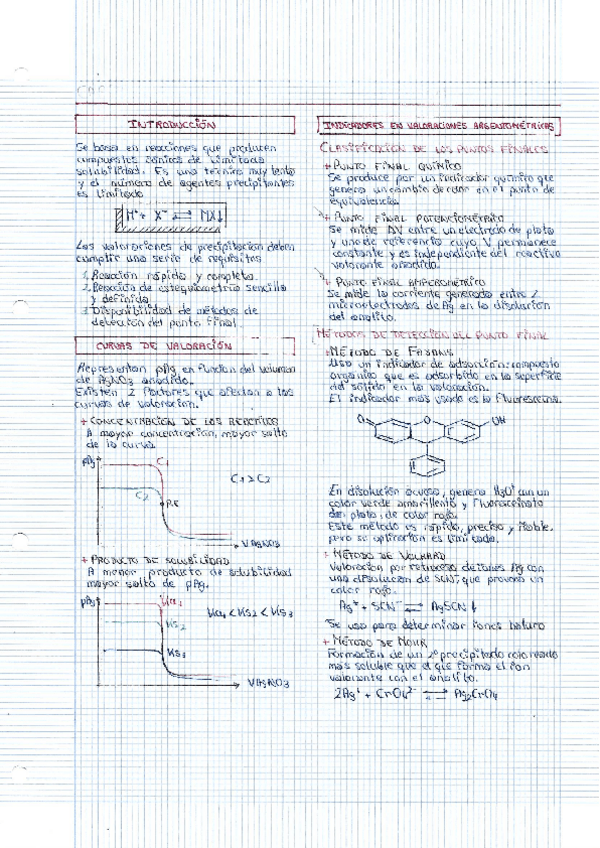 INTRODUCCIÓN
Se basa en reacciones que producen
compuestos iónicos de limitada
solubilidad. Es una técnica muy lenta
y el número de agentes precipitantes
es limitado
M⁺ + X⁻ ⇄ MX↓
Las valoraciones de precipitación deben
cumplir una serie de requisitos
1. Reacción rápida y completa.
2. Reacción de estequiometría sencilla
y definida
3. Disponibilidad de métodos de
detección del punto final.
CURVAS DE VALORACIÓN
Representan pAg en función del volumen
de AgNO3 añadido.
Existen 2 factores que afectan a las
curvas de valoración.
+ CONCENTRACIÓN DE LOS REACTIVOS
A mayor concentración, mayor salto
de la curva.
pAg
C1
C2
P.E
C1 > C2
VAgNO3
+ PRODUCTO DE SOLUBILIDAD
A menor producto de solubilidad
mayor salto de pAg.
pAg
KS1
KS2
KS3
KS1 < KS2 < KS3
VAgNO3
INDICADORES EN VALORACIONES ARGENTOMÉTRICAS
CLASIFICACIÓN DE LOS PUNTOS FINALES
+ PUNTO FINAL QUÍMICO
Se produce por un indicador químico que
genera un cambio de color en el punto de
equivalencia.
+ PUNTO FINAL POTENCIOMÉTRICO
Se mide ΔV entre un electrodo de plata
y uno de referencia cuyo V permanece
constante y es independiente del reactivo
valorante añadido.
+ PUNTO FINAL AMPEROMÉTRICO
Se mide la corriente generada entre 2
microelectrodos de Ag en la disolución
del analito.
MÉTODOS DE DETECCIÓN DEL PUNTO FINAL
+ MÉTODO DE FAJANS
Uso un indicador de adsorción: compuesto
orgánico que es adsorbido en la superficie
del sólido en la valoración.
El indicador más usado es la fluoresceína.
O
O
OH
En disolución acuosa, genera H3O⁺ con un
color verde amarillento y fluoresceinato
de plata, de color rojo.
Este método es rápido, preciso y fiable,
pero su aplicación es limitada.
+ MÉTODO DE VOLHARD
Valoración por retroceso de iones Ag con
una disolución de SCN⁻, que provoca un
color rojo.
Ag⁺ + SCN⁻ ⇄ AgSCN↓
Se usa para determinar iones haluro
+ MÉTODO DE MOHR
Formación de un 2º precipitado coloreado
más soluble que el que forma el ion
valorante con el analito.
2Ag⁺ + CrO4²⁻ ⇄ Ag2CrO4